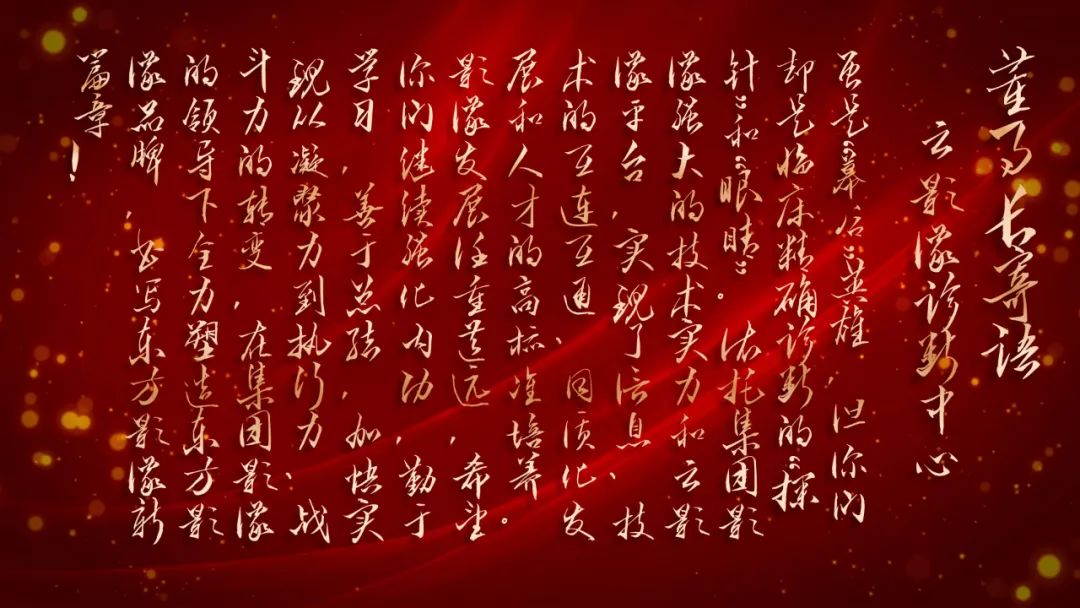 董事长寄语
云影像诊断中心
虽是“幕后”英雄，但你们
却是临床精确诊断的“探
针”和“眼睛”。依托集团影
像强大的技术实力和云影
像平台，实现了信息、技
术的互连互通、同质化发
展和人才的高标准培养。
影像发展任重道远，希望
你们继续强化内功，勤于
学习，善于总结，加快实
现从凝聚力到执行力、战
斗力的转变，在集团影像
的领导下全力塑造东方影
像品牌，书写东方影像新
篇章！